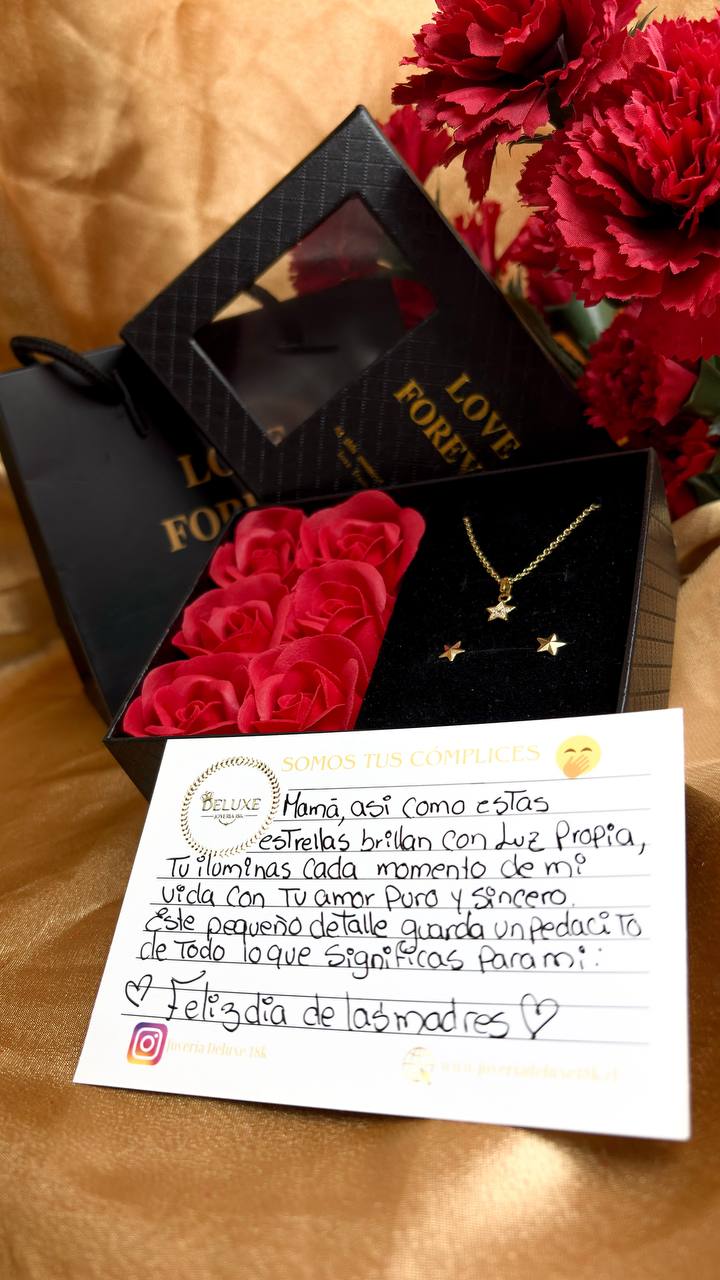 LOVE
FOREV
LO
FOR
SOMOS TUS CÓMPLICES
DELUXE
JOYERIA 18K
Mamá, asi como estas
estrellas brillan con Luz Propia,
Tu iluminas cada momento de mi
vida con Tu amor Puro y Sincero.
Este pequeño detalle guarda un Pedaci To
de Todo lo que Significas Para mi:
♡ Feliz dia de las madres ♡
Joyeria Deluxe 18k
www.joyeriadeluxe18k.cl